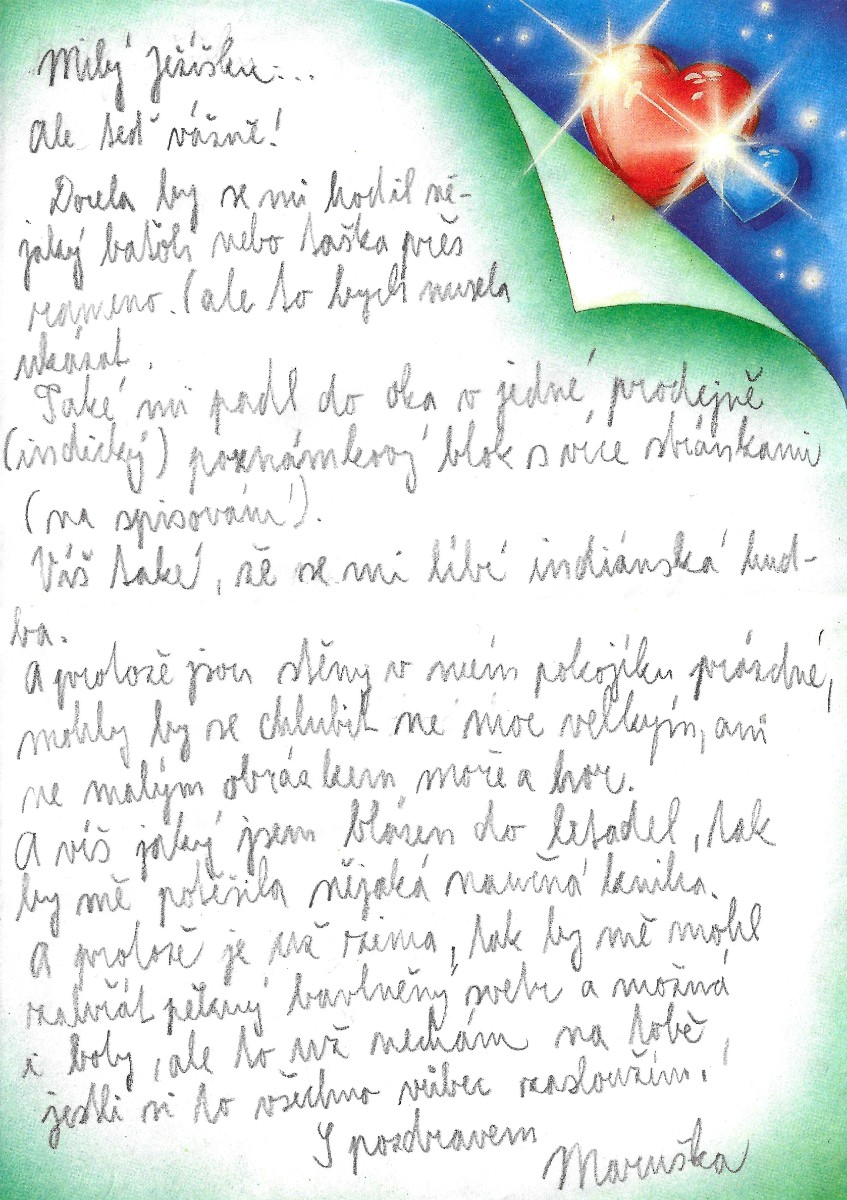 Milý Ježíšku...
Ale teď vážně!
Docela by se mi hodil ně-
jaký batoh nebo taška přes
rameno. (ale to bych musela
ukázat.
Také mi padl do oka v jedné prodejně
(indický) poznámkový blok s více stránkami
(na spisování).
Víš také, že se mi líbí indiánská hud-
ba.
A protože jsou stěny v mém pokojíku prázdné,
mohly by se chlubit ne moc velkým, ani
ne malým obrázkem moře a hor.
A víš jaký jsem blázen do letadel, tak
by mě potěšila nějaká naučná kniha.
A protože je už zima, tak by mě mohl
zahřát pěkný bavlněný svetr a možná
i boty, ale to už nechám na tobě,
jestli si to všechno vůbec zasloužím.
S pozdravem
Maruška